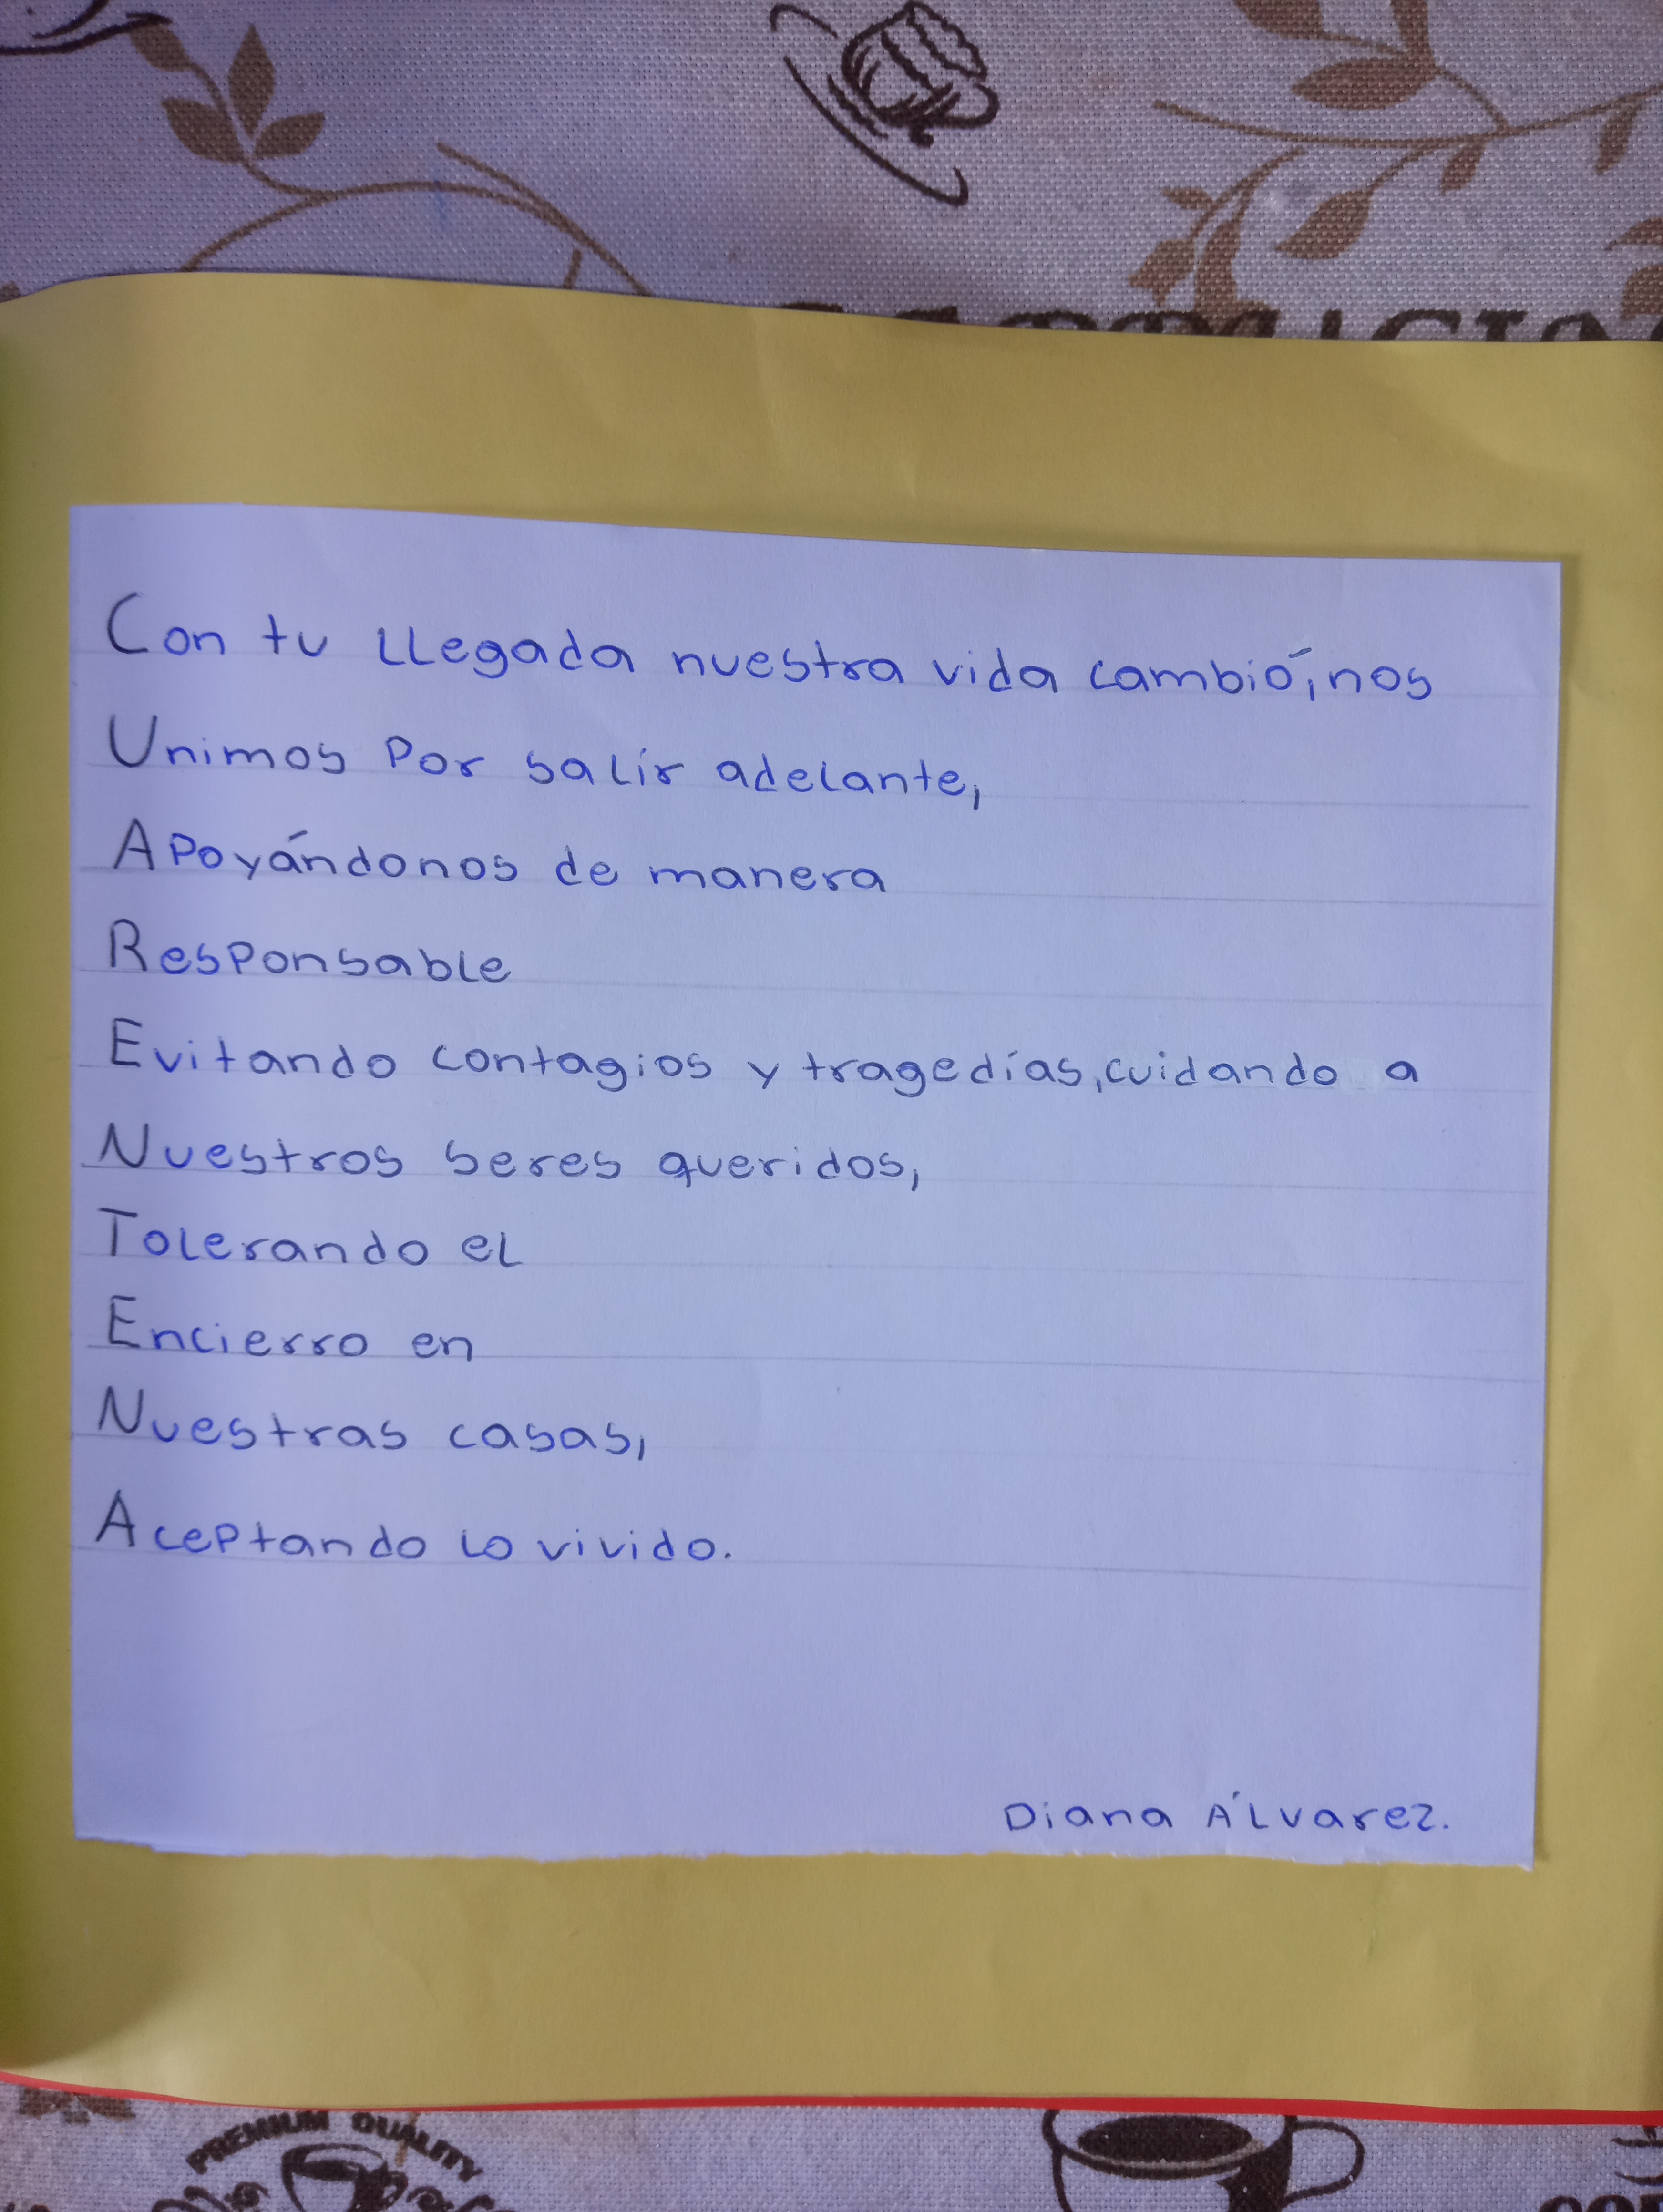 Con tu llegada nuestra vida cambió, nos
Unimos por salir adelante,
Apoyándonos de manera
Responsable
Evitando contagios y tragedías, cuidando a
Nuestros seres queridos,
Tolerando el
Encierro en
Nuestras casas,
Aceptando lo vivido.
Diana Álvarez.
PREMIUM QUALITY